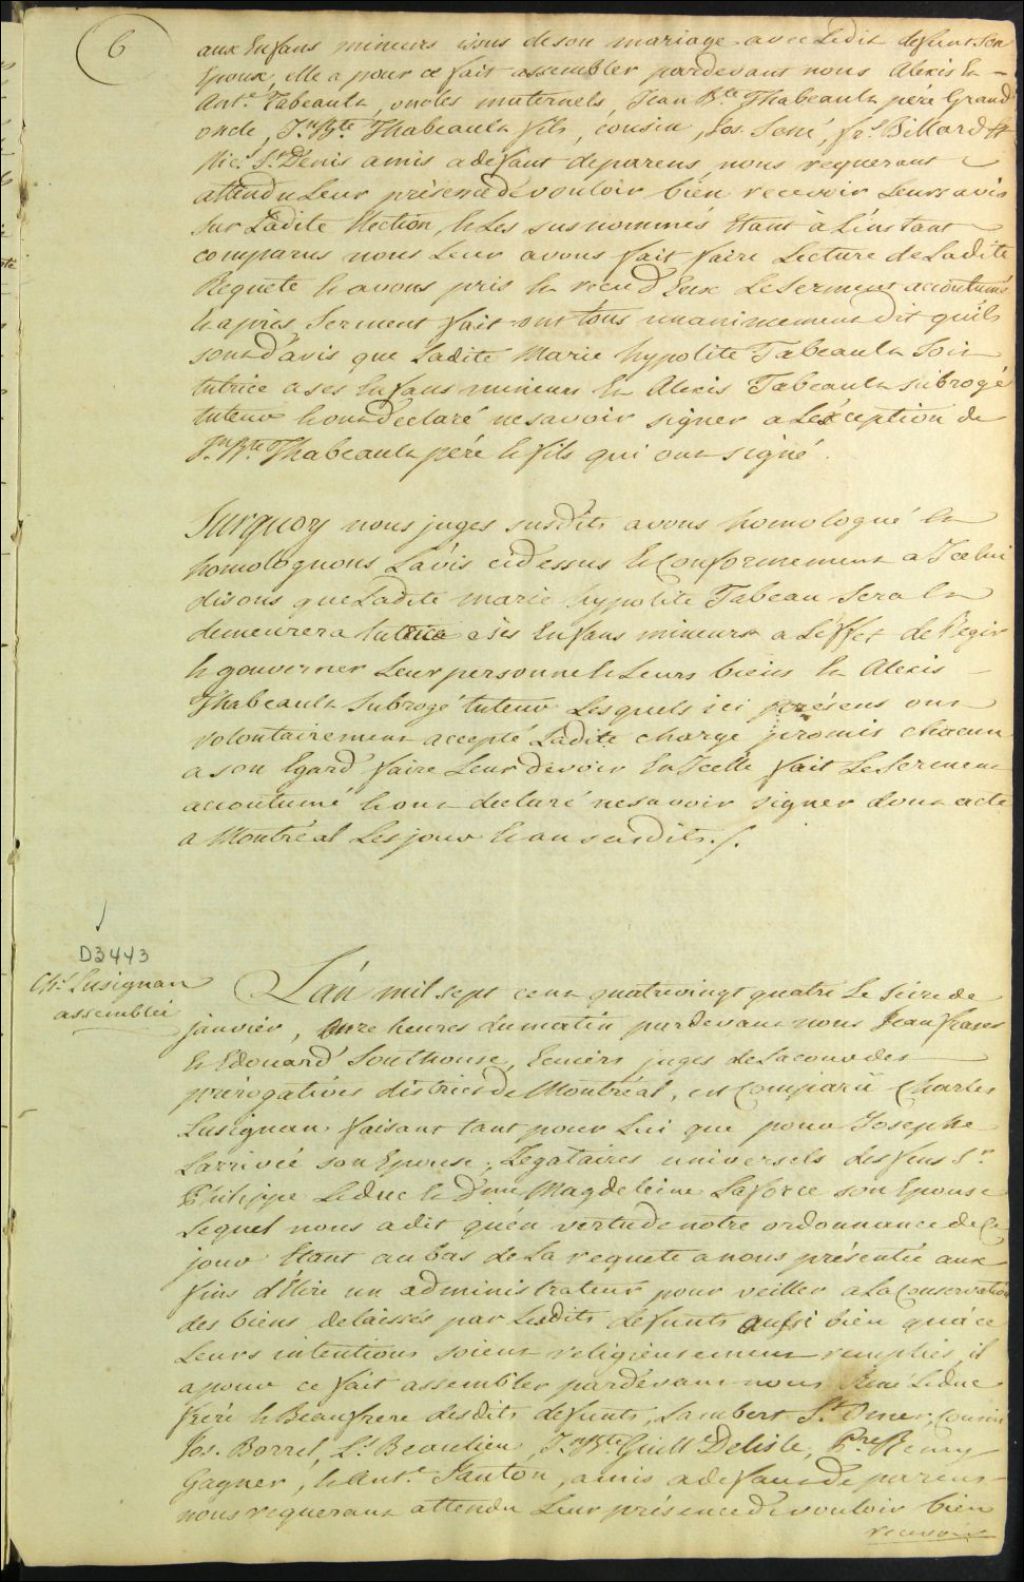 6
aux Enfans mineurs issus de son mariage avec Ledit defunt Son
Epoux, elle a pour ce fait assembler pardevant nous Alexis Et
Ant.e Tabeault, oncles maternels, Jean B.te Thabeault pére Grand
oncle, J.n B.te Thabeault fils, cousin, Jos. Sené, fr.s Billard Et
Nic.s S.t Denis amis a defaut de parens, nous requerant
attendu Leur présence de vouloir bien recevoir Leurs avis
Sur Ladite Election, & Les susnommés Etant à L'instant
comparus nous Leur avons fait faire Lecture de Ladite
Requete & avons pris Et reçu d'Eux Le Serment accoutumé
& après Serment fait ont tous unanimement dit qu'ils
sont d'avis que Ladite Marie hypolite Tabeault Soit
tutrice a ses Enfans mineurs Et Alexis Tabeault subrogé
tuteur & ont déclaré ne savoir signer a L'exception de
J.n B.te Thabeault pére & fils qui ont signé.
Surquoy nous juges susdits avons homologué Et
homologuons L'avis cidessus & Conformement a Icelui
disons que Ladite marie hypolite Tabeau Sera Et
demeurera tutrice a ses Enfans mineurs a L'effet de Regir
& gouverner Leur personne & Leurs biens Et Alexis
Thabeault Subrogé tuteur Lesquels ici présens ont
volontairement accepté Ladite charge promis chacun
a son Egard faire Leur devoir En Icelle fait Le Serment
accoutumé & ont declaré ne savoir signer dont acte
a Montréal Les jour & an susdits./.
D3443
Ch.s Lusignan
assemblée
L'an mil sept cent quatrevingt quatre Le Seize de
janvier, onze heures du matin pardevant nous Jean Fraser
& Edouard Southouse, Ecuiers juges de La cour des
prérogatives district de Montréal, est Comparu Charles
Lusignan faisant tant pour Lui que pour Josephe
Larrivée son Epouse, Legataires universels des feus S.r
Philippe Leduc & D.me Magdeleine Laforce son Epouse
Lequel nous a dit qu'en vertu de notre ordonnance de Ce
jour Etant au bas de La requete a nous présentée aux
fins d'Elire un administrateur pour veiller a La Conservation
des biens delaissés par Lesdits défunts aussi bien qu'a ce
Leurs intentions soient religieusement remplies, il
a pour ce fait assembler pardevant nous René Leduc
frére & Beaufrere desdits defunts, Lambert S.t Omer, Cousin
Jos. Borrel, L.s Beaulieu, J.n B.te Guill.e Delisle, P.re Remy
Gagner, & Ant.e Janton, amis a defaut de parens
nous requerant attendu Leur présence de vouloir bien
recevoir